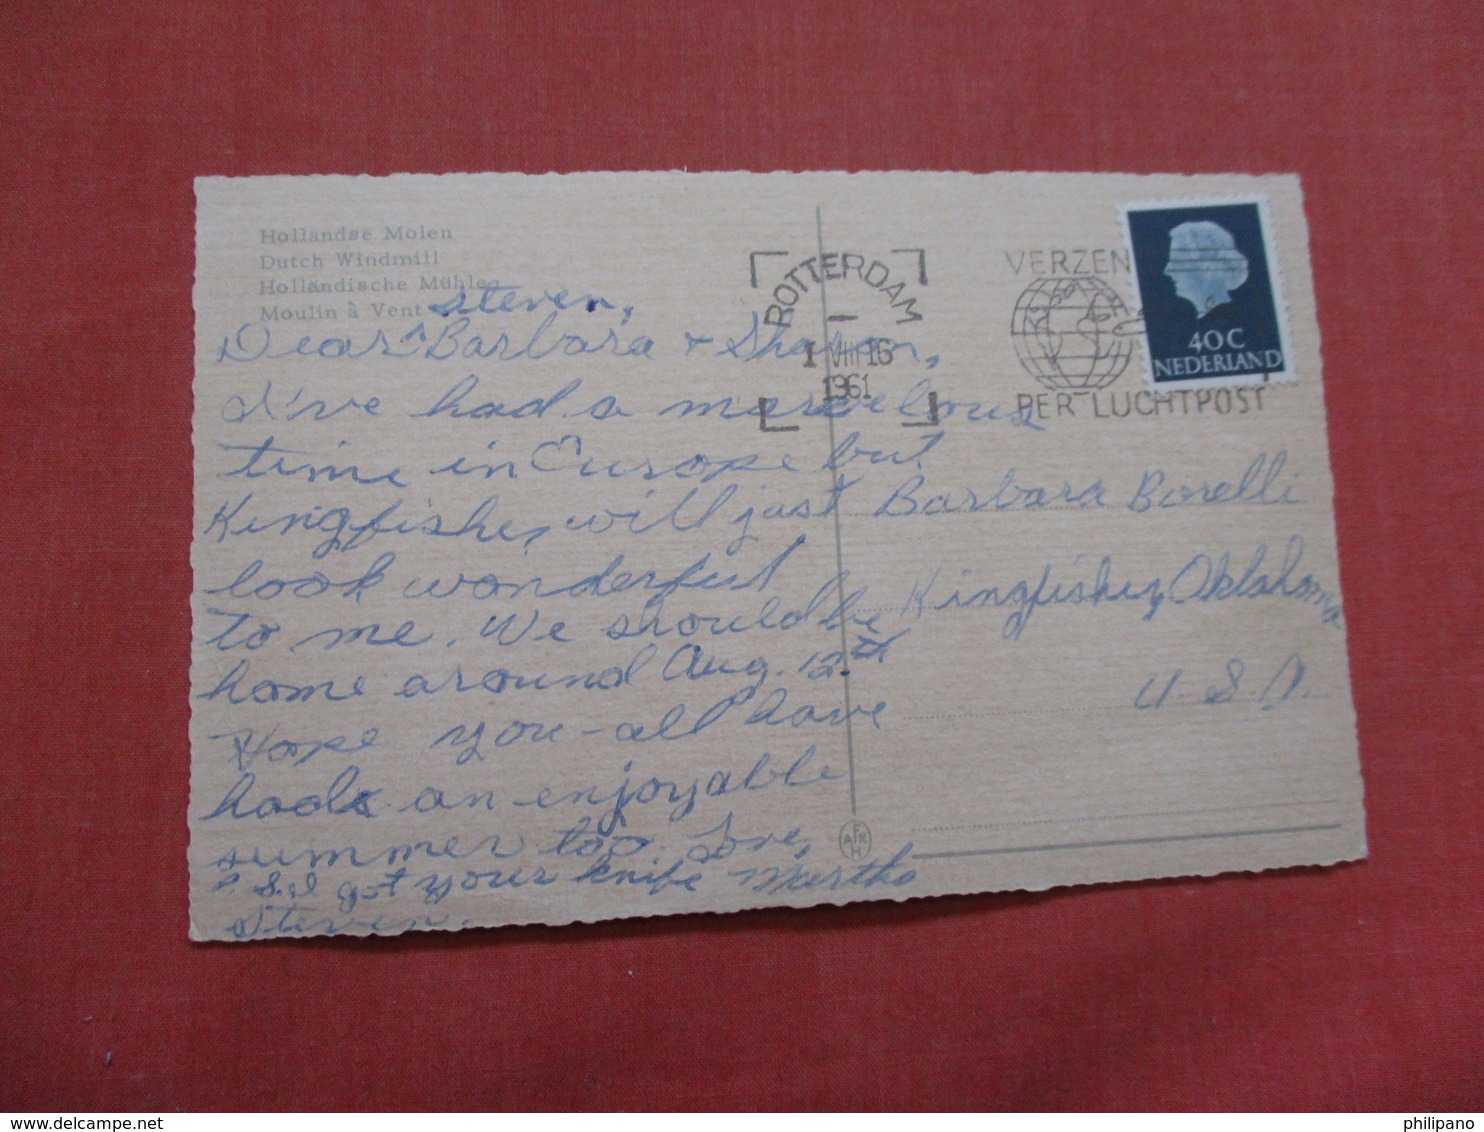 Hollandse Molen
Dutch Windmill
Holländische Mühle
Moulin à Vent
steven,
Dear ^ Barbara & Sharon,
I've had a marvelous
time in Europe but
Kingfisher will just
look wonderful
to me. We should be
home around Aug. 12th
Hope you-all have
had an enjoyable
summer too. Love,
Martha
P.S. I got your knife
Steven.
ROTTERDAM
1 VIII 16
1961
VERZEN
PER LUCHTPOST
40 C
NEDERLAND
Barbara Borelli
Kingfisher, Oklahoma
U.S.A.
philipano